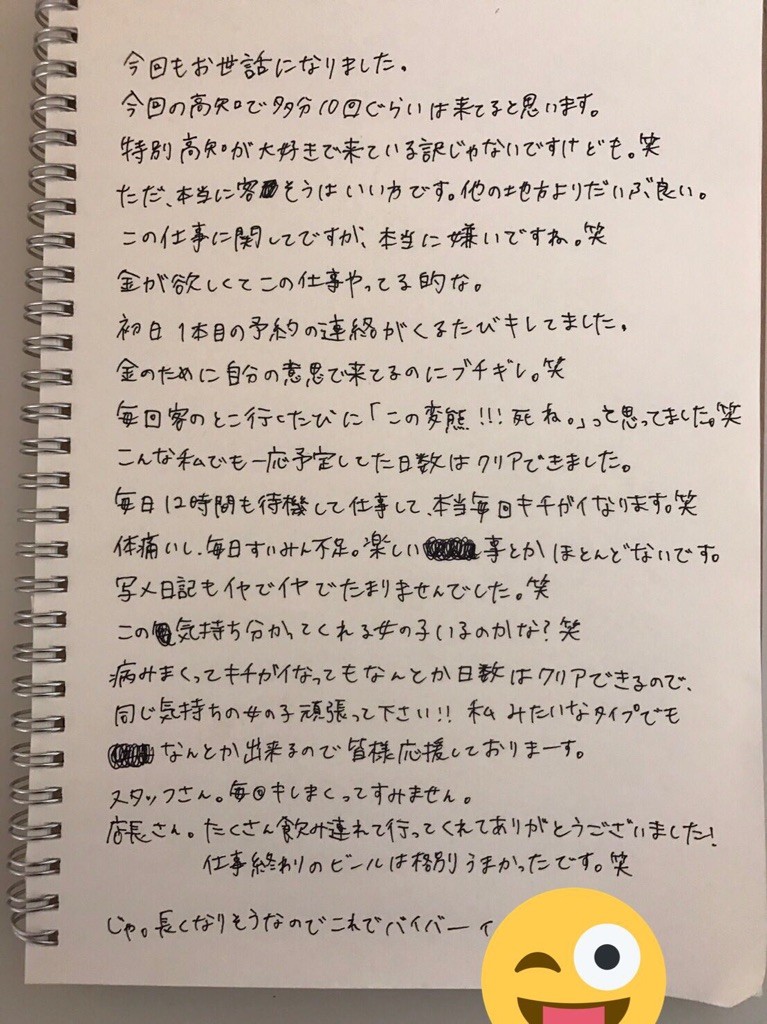 今回もお世話になりました。
今回の高知で多分10回ぐらいは来てると思います。
特別高知が大好きで来ている訳じゃないですけども。笑
ただ、本当に客そうはいい方です。他の地方よりだいぶ良い。
この仕事に関してですが、本当に嫌いですね。笑
金が欲しくてこの仕事やってる的な。
初日1本目の予約の連絡がくるたびキレてました。
金のために自分の意思で来てるのにブチギレ。笑
毎回客のとこ行くたびに「この変態!!!死ね。」って思ってました。笑
こんな私でも一応予定してた日数はクリアできました。
毎日12時間も待機して仕事して、本当毎回キチガイなります。笑
体痛いし、毎日すいみん不足。楽しい事とかほとんどないです。
写メ日記もイヤでイヤでたまりませんでした。笑
この気持ち分かってくれる女の子いるのかな?笑
病みまくってキチガイなってもなんとか日数はクリアできるので、
同じ気持ちの女の子頑張って下さい!!私みたいなタイプでも
なんとか出来るので皆様応援しておりまーす。
スタッフさん。毎回キレまくってすみません。
店長さん。たくさん飲み連れて行ってくれてありがとうございました!
仕事終わりのビールは格別うまかったです。笑
じゃ。長くなりそうなのでこれでバイバーイ